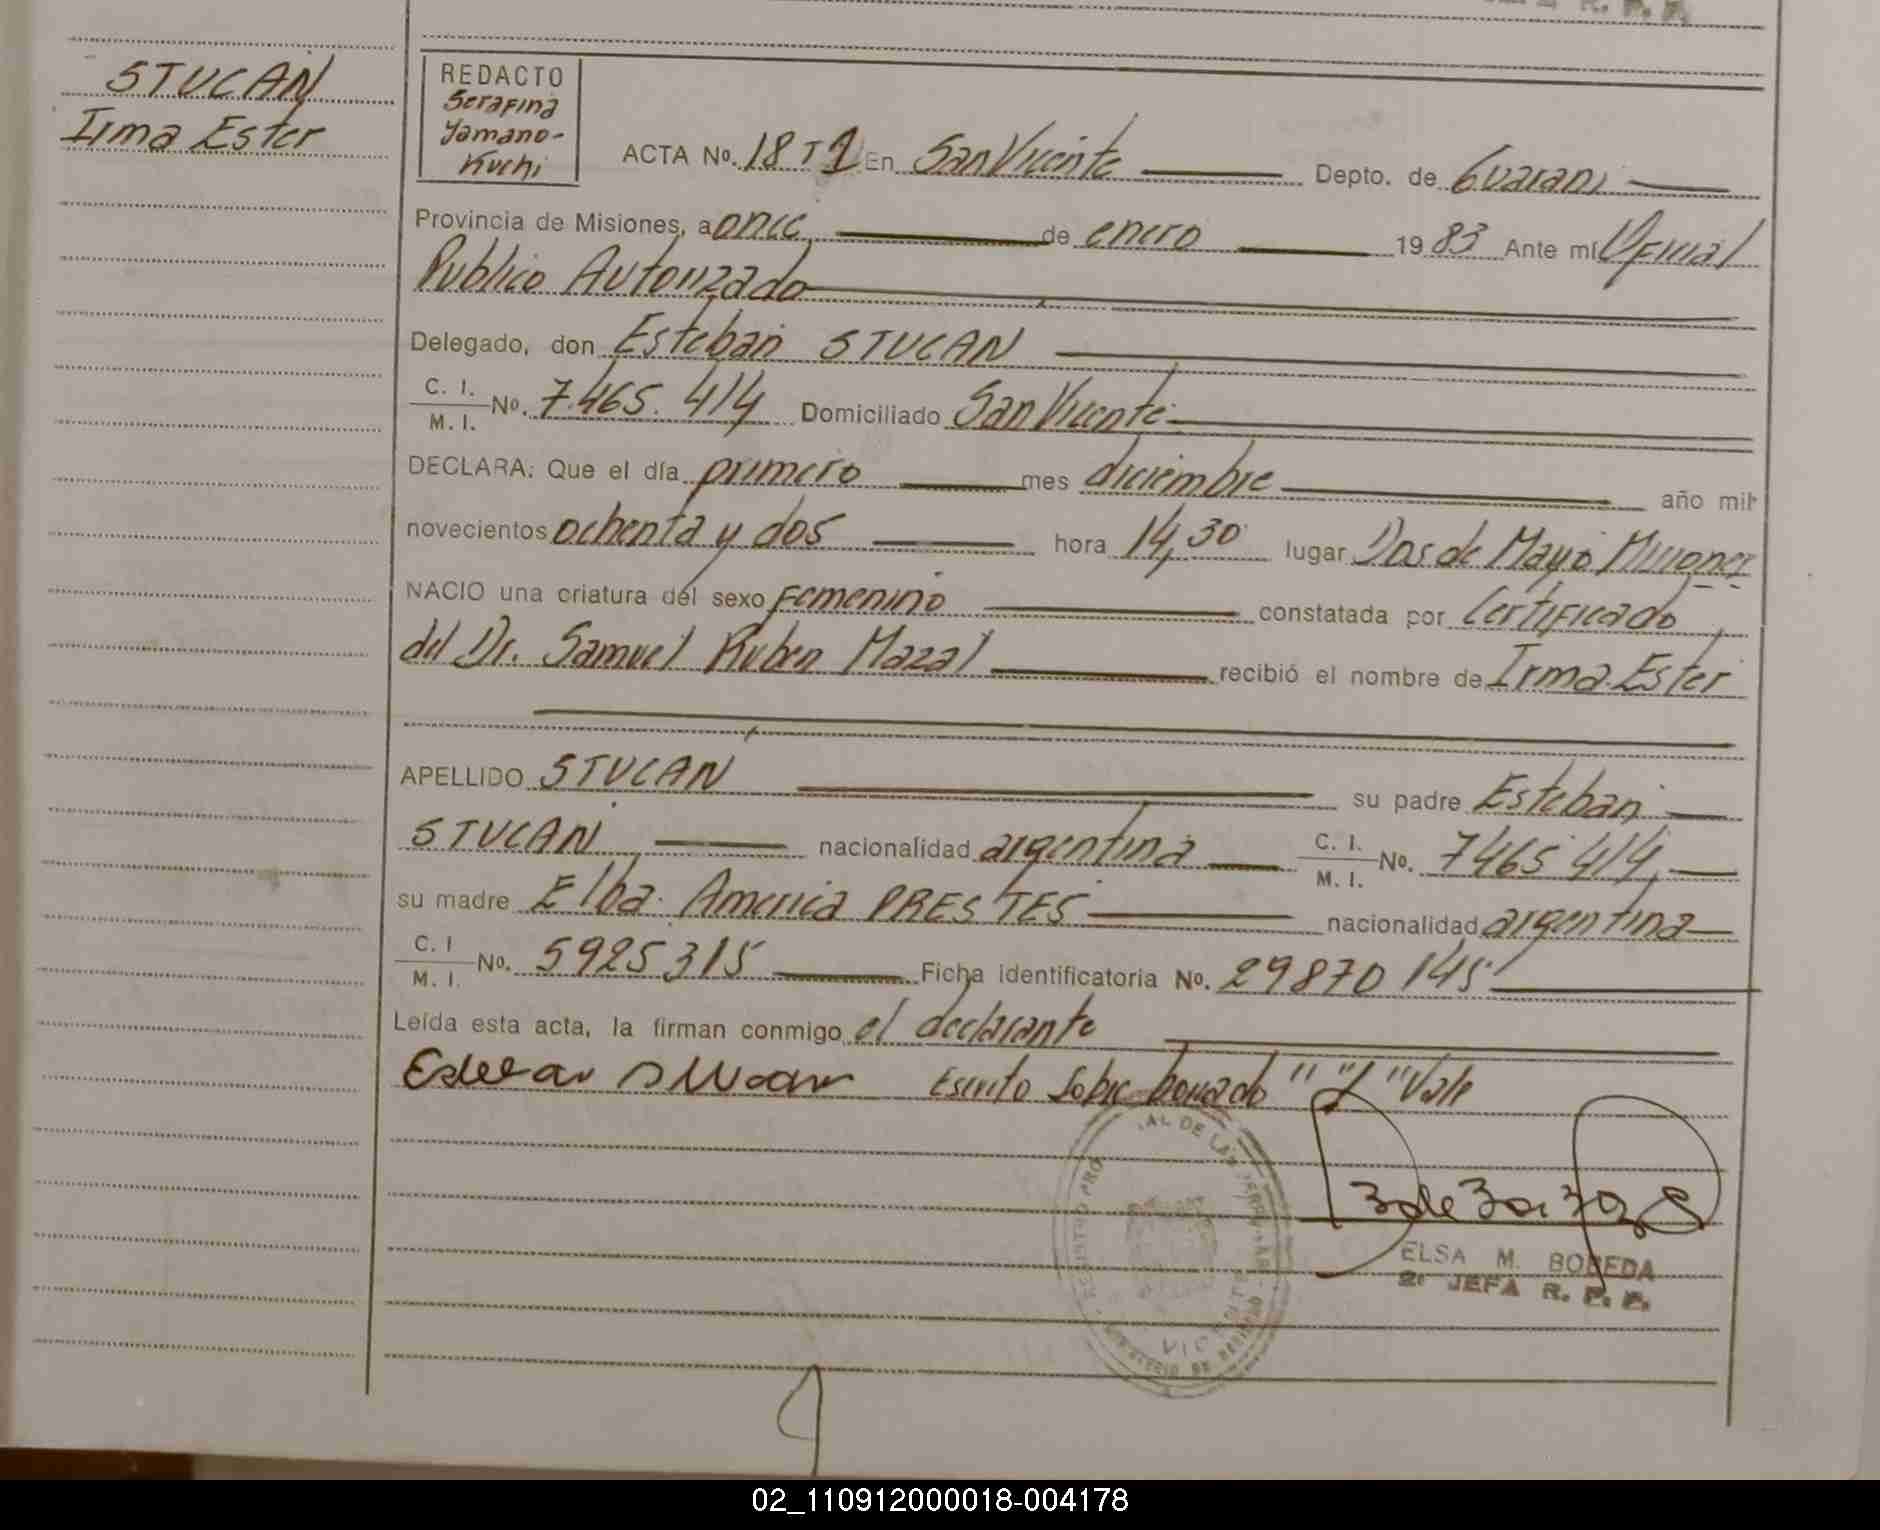 STUCAN
Irma Ester
REDACTO
Serafina
Yamano-
Kuchi
ACTA No. 18 T 1 En San Vicente Depto. de Guarani
Provincia de Misiones, a once de enero 1983 Ante mí Oficial
Publico Autorizado
Delegado, don Esteban STUCAN
C. I.
M. I. No. 7.465.414 Domiciliado San Vicente
DECLARA: Que el día primero mes diciembre año mil
novecientos ochenta y dos hora 14,30 lugar Dos de Mayo Misiones
NACIO una criatura del sexo Femenino constatada por Certificado
del Dr. Samuel Ruben Mazal recibió el nombre de Irma Ester
APELLIDO STUCAN su padre Esteban
STUCAN nacionalidad argentina C. I.
M. I. No. 7465414
su madre Elba America PRESTES nacionalidad argentina
C. I
M. I. No. 5925315 Ficha identificatoria No. 29870145
Leída esta acta, la firman conmigo el declarante
Escrito sobre borrado " "1" Vale
ELSA M. BOBEDA
2º JEFA R. P. P.
02_110912000018-004178